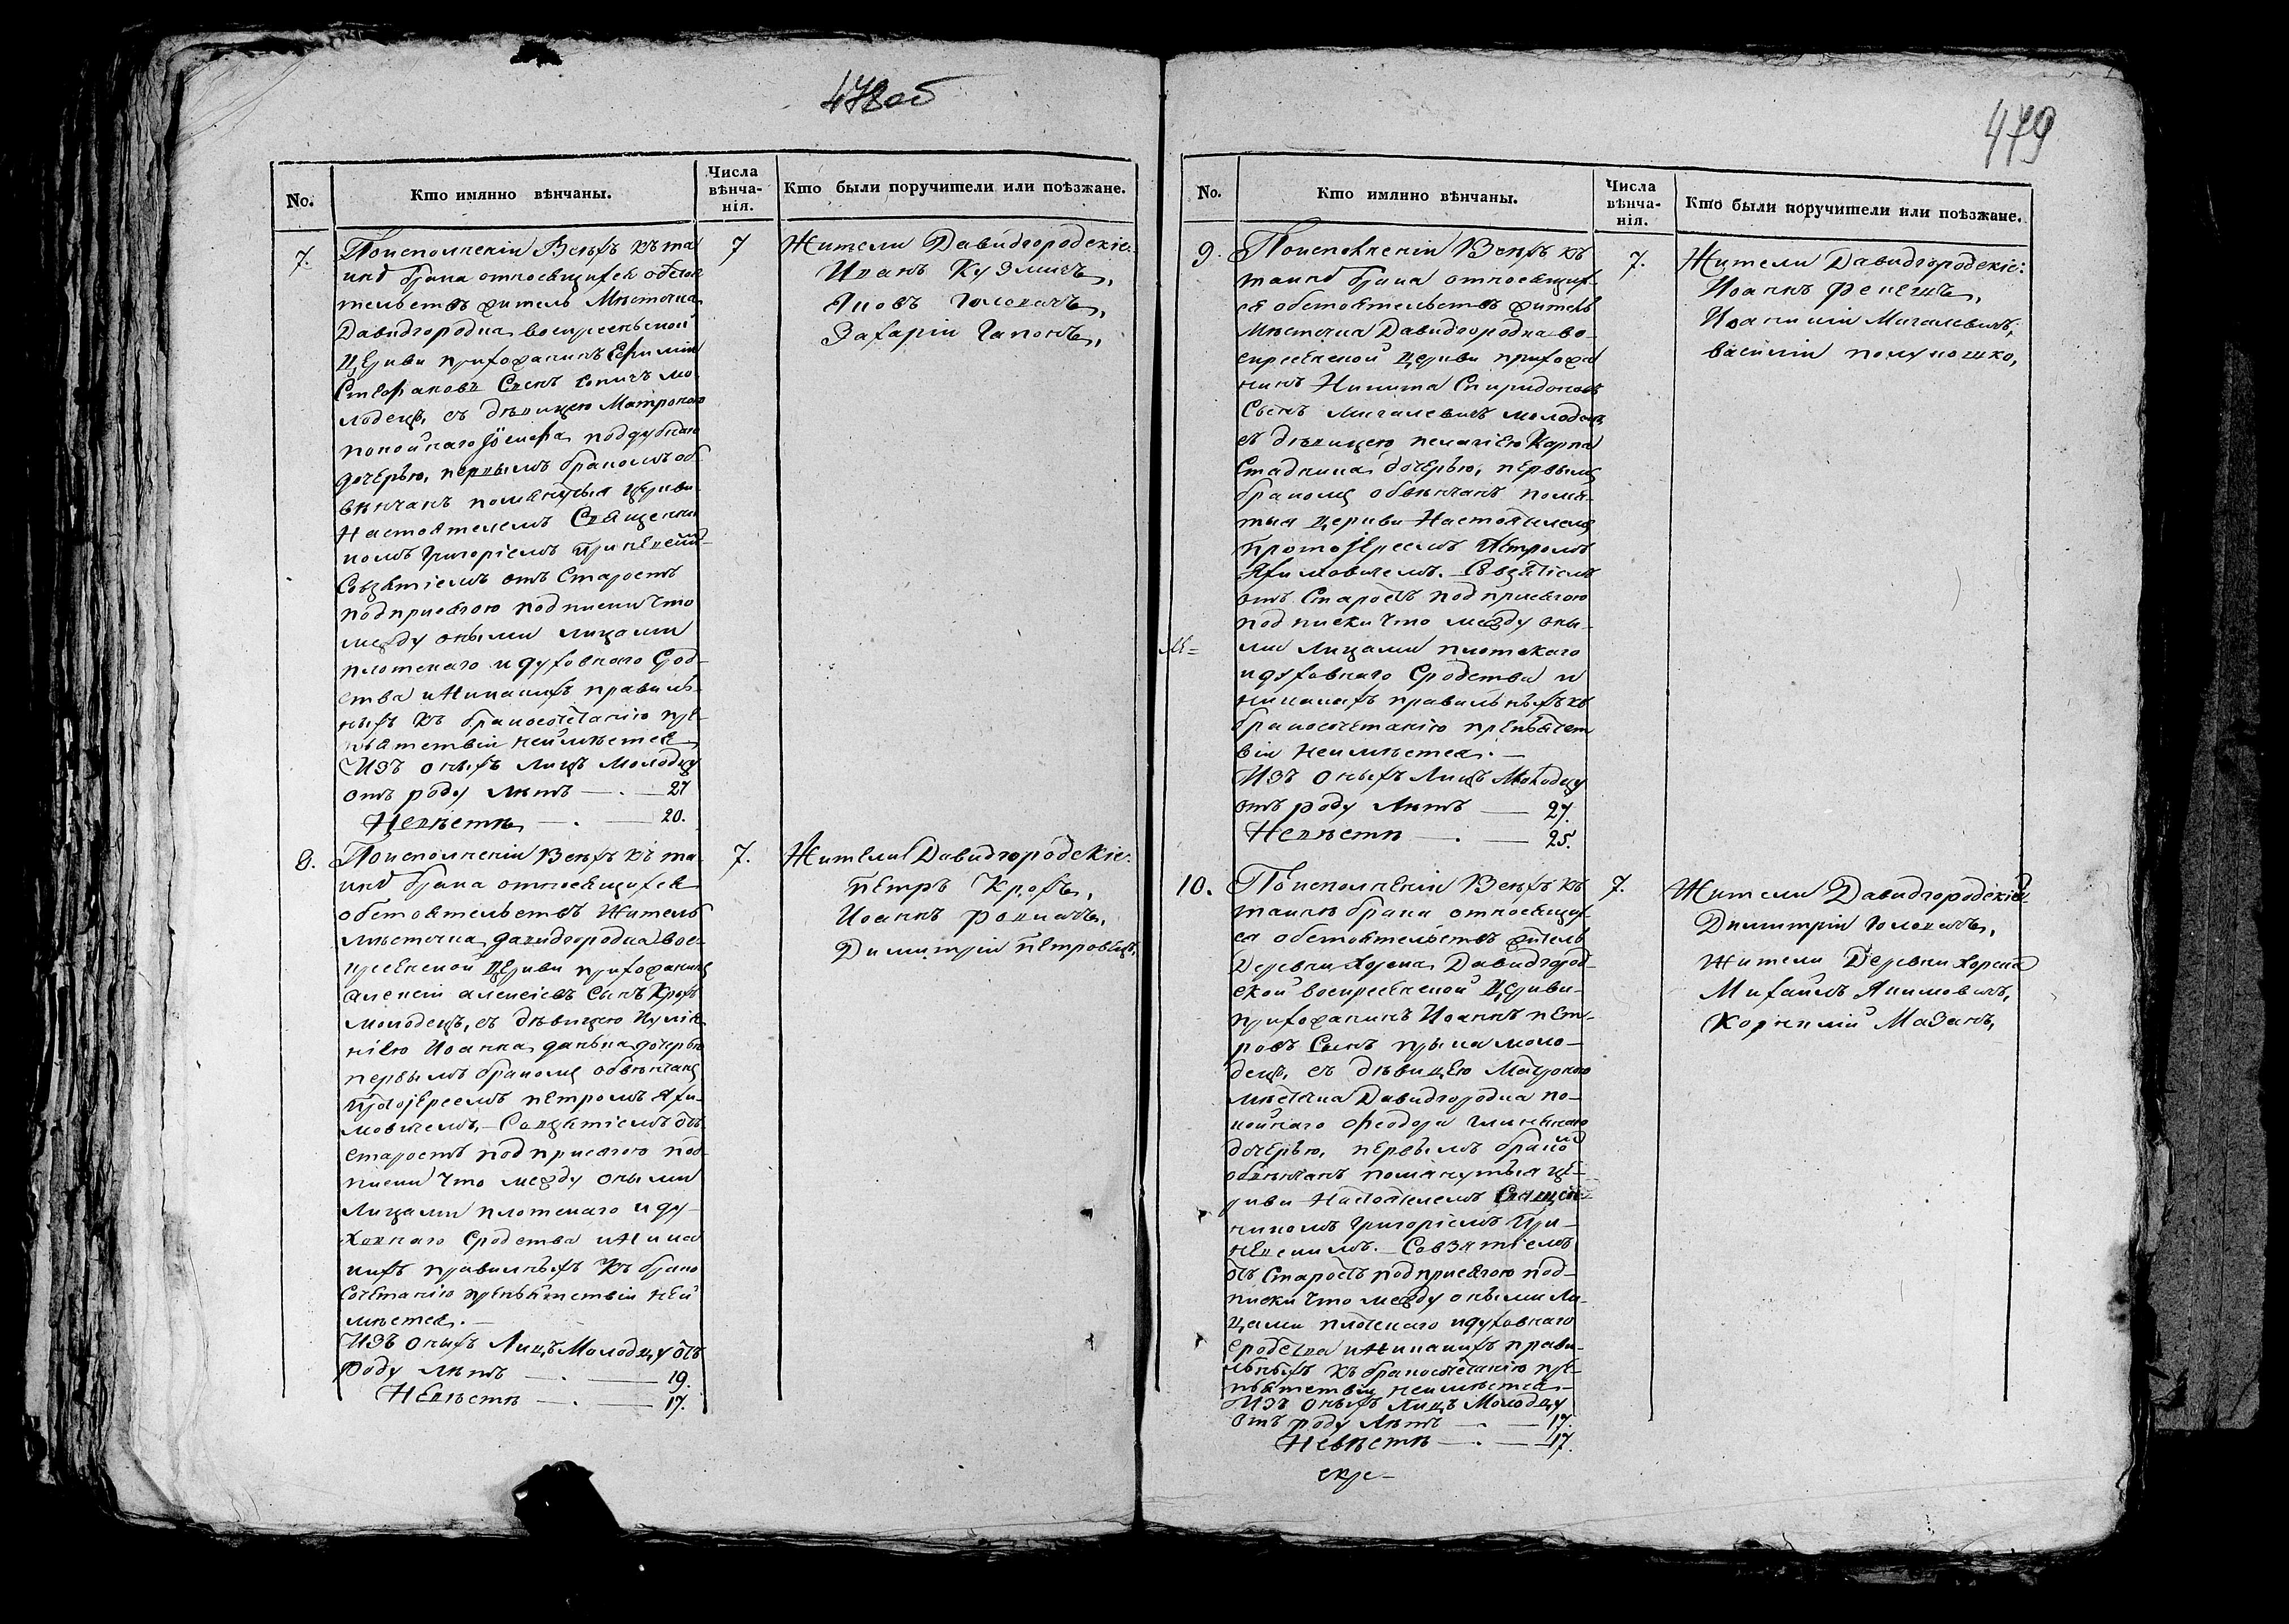 478 об
No.
Кто имянно вѣнчаны.
Числа
вѣнча-
нія.
Кто были поручители или поѣзжане.
7.
По исполненіи Всѣхъ къ та
инѣ брака относящихся обстоя
тельствъ житель Мѣстечка
Давидгородка воскресенской
Церкви прихожанинъ Ефимій
Стефановъ Сынъ молодецъ
лодецъ, съ дѣвицею Матроною
покойнаго Іосифа
дочерью, первымъ бракомъ об
вѣнчанъ помянутыя церкви
Настоятелемъ Священни
комъ Григоріемъ
Совзятіемъ отъ Старостъ
подприсягою подписки что
между оными лицами
плотскаго и духовнаго Срод-
ства и Никакихъ правиль-
ныхъ къ бракосочетанію пре-
пятствій неимѣется
Изъ оныхъ лицъ молодцу
отъ роду лѣтъ — . — 27
Невѣстѣ — . — 20.
7
Жители Давидгородскіе:
Иванъ Кузмичъ,
Яковъ Головачъ,
Захарій Гапонъ,
8.
По исполненіи Всѣхъ къ та-
инѣ брака относящихся
обстоятельствъ Житель
мѣстечка давидгородка вос-
кресенской Церкви прихожанинъ
алексій алексіевъ Сынъ Крохъ
молодецъ, съ дѣвицею
Иоанна дочерью
первымъ бракомъ обвѣнчанъ
протоіереемъ петромъ Яхи-
мовичемъ, — Совзятіемъ отъ
старостъ подприсягою под-
писки что между оными
Лицами плотскаго и ду-
ховнаго Сродства и Ника
кихъ правильныхъ къ брако
сочетанію препятствій неи
мѣется. —
Изъ оныхъ Лицъ Молодцу отъ
роду лѣтъ — . — 19.
Невѣстѣ — . — 17.
7.
Жители Давидгородскіе:
петръ Крохъ,
Иоаннъ
Димитрій петровецъ,
479
No.
Кто имянно вѣнчаны.
Числа
вѣнча-
нія.
Кто были поручители или поѣзжане.
9.
По исполненіи Всѣхъ къ
таинѣ брака относящих-
ся обстоятельствъ житель
мѣстечка Давидгородка во-
скресенской церкви прихожа
нинъ Никита Спиридоновъ
Сынъ мигалевичъ молодецъ
съ дѣвицею пелагіею Карпа
Стадника дочерью, первымъ
бракомъ обвѣнчанъ помя-
тыя Церкви Настоятелемъ
протоіереемъ Петромъ
Яхимовичемъ. — Совзятіемъ
отъ Старостъ подприсягою
подписки что между оны-
ми лицами плотскаго
и духовнаго Сродства и
никакихъ правильныхъ къ
бракосочетанію препятст
вій неимѣется. —
Изъ оныхъ Лицъ Молодцу
отъ роду Лѣтъ — 27.
Невѣстѣ — . — 25.
7.
Жители Давидгородскіе:
Иоаннъ Фенецъ,
Иоанникій Мигалевичъ,
василій полуношко,
10.
По исполненіи Всѣхъ къ
таинѣ брака относящих-
ся обстоятельствъ житель
Деревни Хорска Давидгород-
ской воскресенской Церкви
прихожанинъ Иоаннъ пет-
ровъ Сынъ моло-
децъ, съ дѣвицею Матроною
мѣстечка Давидгородка по-
койнаго Феодора
дочерью, первымъ бракомъ
обвѣнчанъ помянутыя це-
ркви Настоятелемъ Священ-
никомъ Григоріемъ
— Совзятіемъ
отъ Старостъ подприсягою под-
писки что между оными Ли-
цами плотскаго и духовнаго
сродства и Никакихъ прави-
льныхъ къ бракосочетанію пре-
пятствій неимѣется —
Изъ оныхъ Лицъ Молодцу
отъ роду Лѣтъ — . — 17.
Невѣстѣ — . — 17.
7.
Жители Давидгородскіе:
Димитрій Головачъ,
Жители Деревни Хорска
Михаилъ Якимовичъ,
Корнилій Мазанъ,